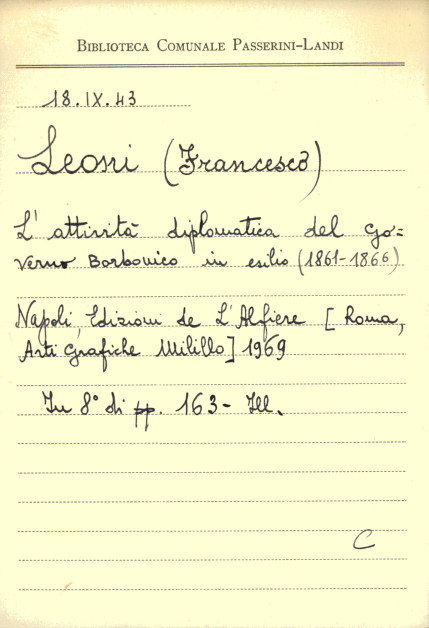 BIBLIOTECA COMUNALE PASSERINI-LANDI
18.IX.43
Leoni (Francesco)
L'attività diplomatica del go=
verno Borbonico in esilio (1861-1866)
Napoli, Edizioni de L'Alfiere [Roma,
Arti Grafiche Milillo] 1969
In 8° di pp. 163- Ill.
C